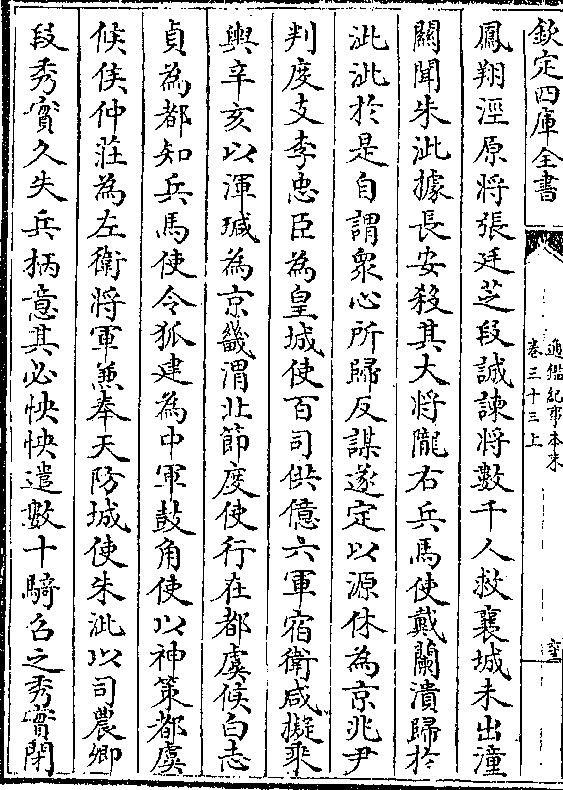 欽定四庫全書
通鑑紀事本末
卷三十三上
鳳翔涇原將張廷芝段誠諫將數千人救襄城未出潼
關聞朱泚據長安殺其大將隴右兵馬使戴蘭潰歸於
泚泚於是自謂衆心所歸反謀遂定以源休為京兆尹
判度支李忠臣為皇城使百司供億六軍宿衛咸擬乘
輿辛亥以渾瑊為京畿渭北節度使行在都虞候白志
貞為都知兵馬使令狐建為中軍鼓角使以神策都虞
候侯仲莊為左衛將軍兼奉天防城使朱泚以司農卿
段秀實久失兵柄意其必怏怏遣數十騎召之秀實閉